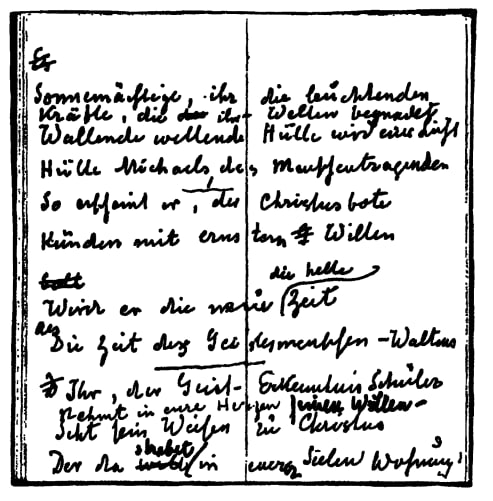 Sonnenmächtige, ihr die leuchtenden
Kräfte, die ihr Welten begnadet
Wallende wellende Hülle wird euer Licht
Hülle Michaels des Menschentragenden
So erscheint er, der Christusbote
Künden mit ernstem Willen
die helle
Wird er die neue Zeit
Die Zeit des Geistesmenschen-Waltens
Ihr, der Geist-Erkenntnis Schüler
Nehmt in eure Herzen seinen Willen
sein Weisen zu Christus
strebet
Der da in eurer Seelen Wohnung